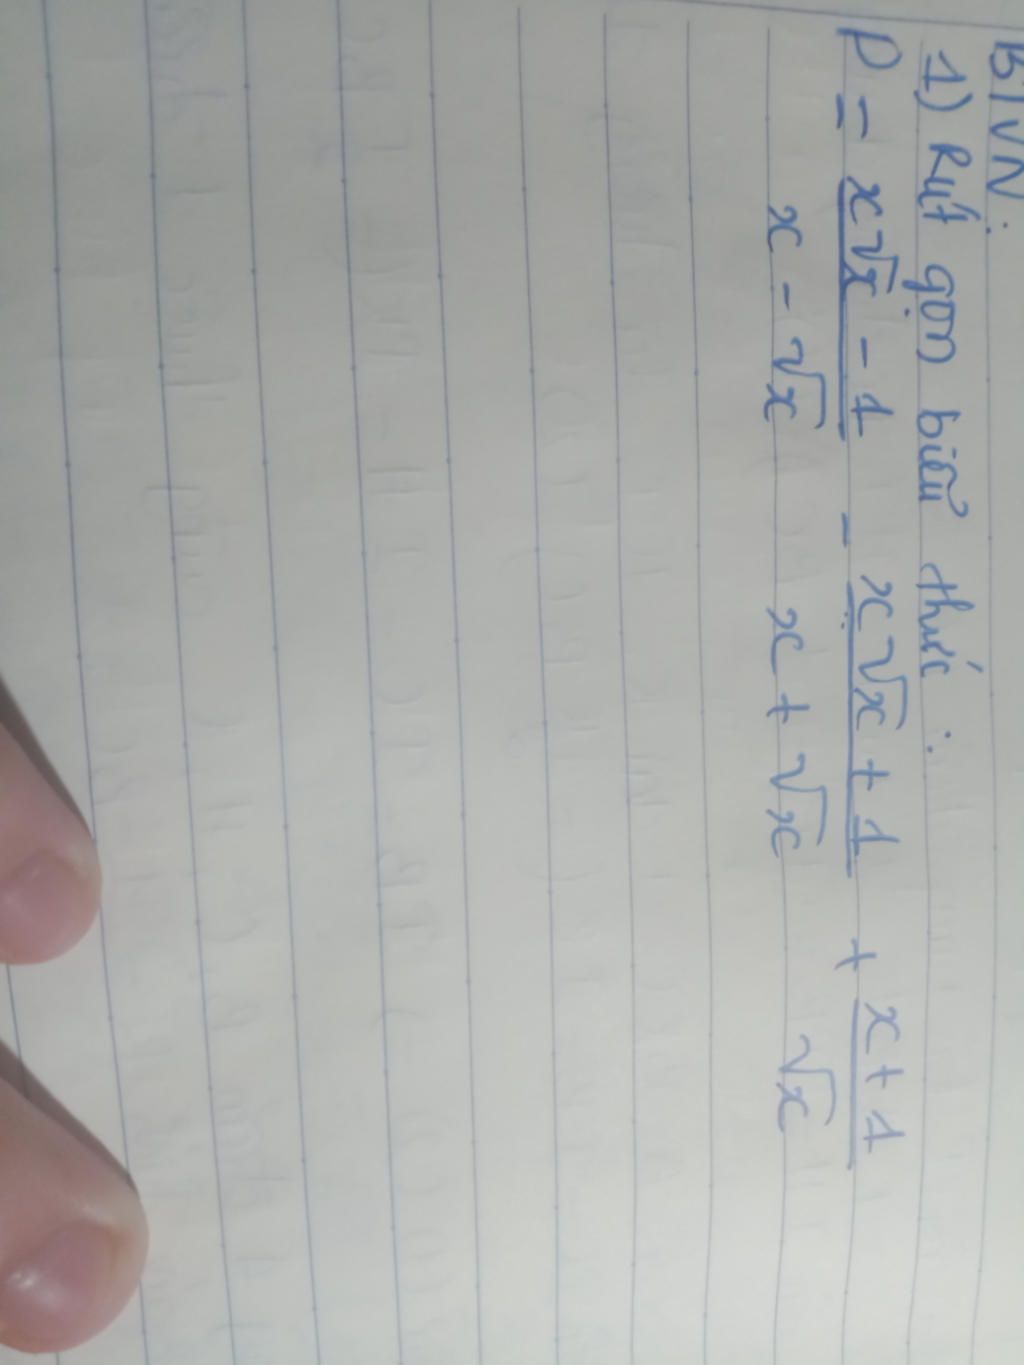 BTVN:
1) Rút gọn biểu thức:
P = \frac{x\sqrt{x} - 1}{x - \sqrt{x}} - \frac{x\sqrt{x} + 1}{x + \sqrt{x}} + \frac{x + 1}{\sqrt{x}}